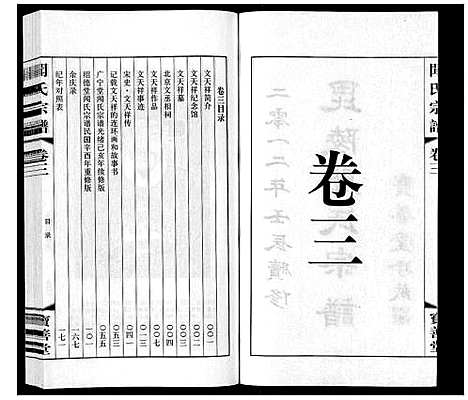 卷三
卷三目录
文天祥简介 〇〇一
文天祥纪念馆 〇〇二
文天祥墓
北京文丞相祠 〇〇四
文天祥作品 〇〇七
文天祥事迹 〇一三
宋史·文天祥传 〇四一
记载文天祥的连环画和故事书
广宁堂闻氏宗谱光绪己亥年续修版 〇五五
绍德堂闻氏宗谱民国辛酉年重修版 一〇一
余庆录 一六七
纪年对照表 一七一
宗譜
卷三
目录
寶善堂